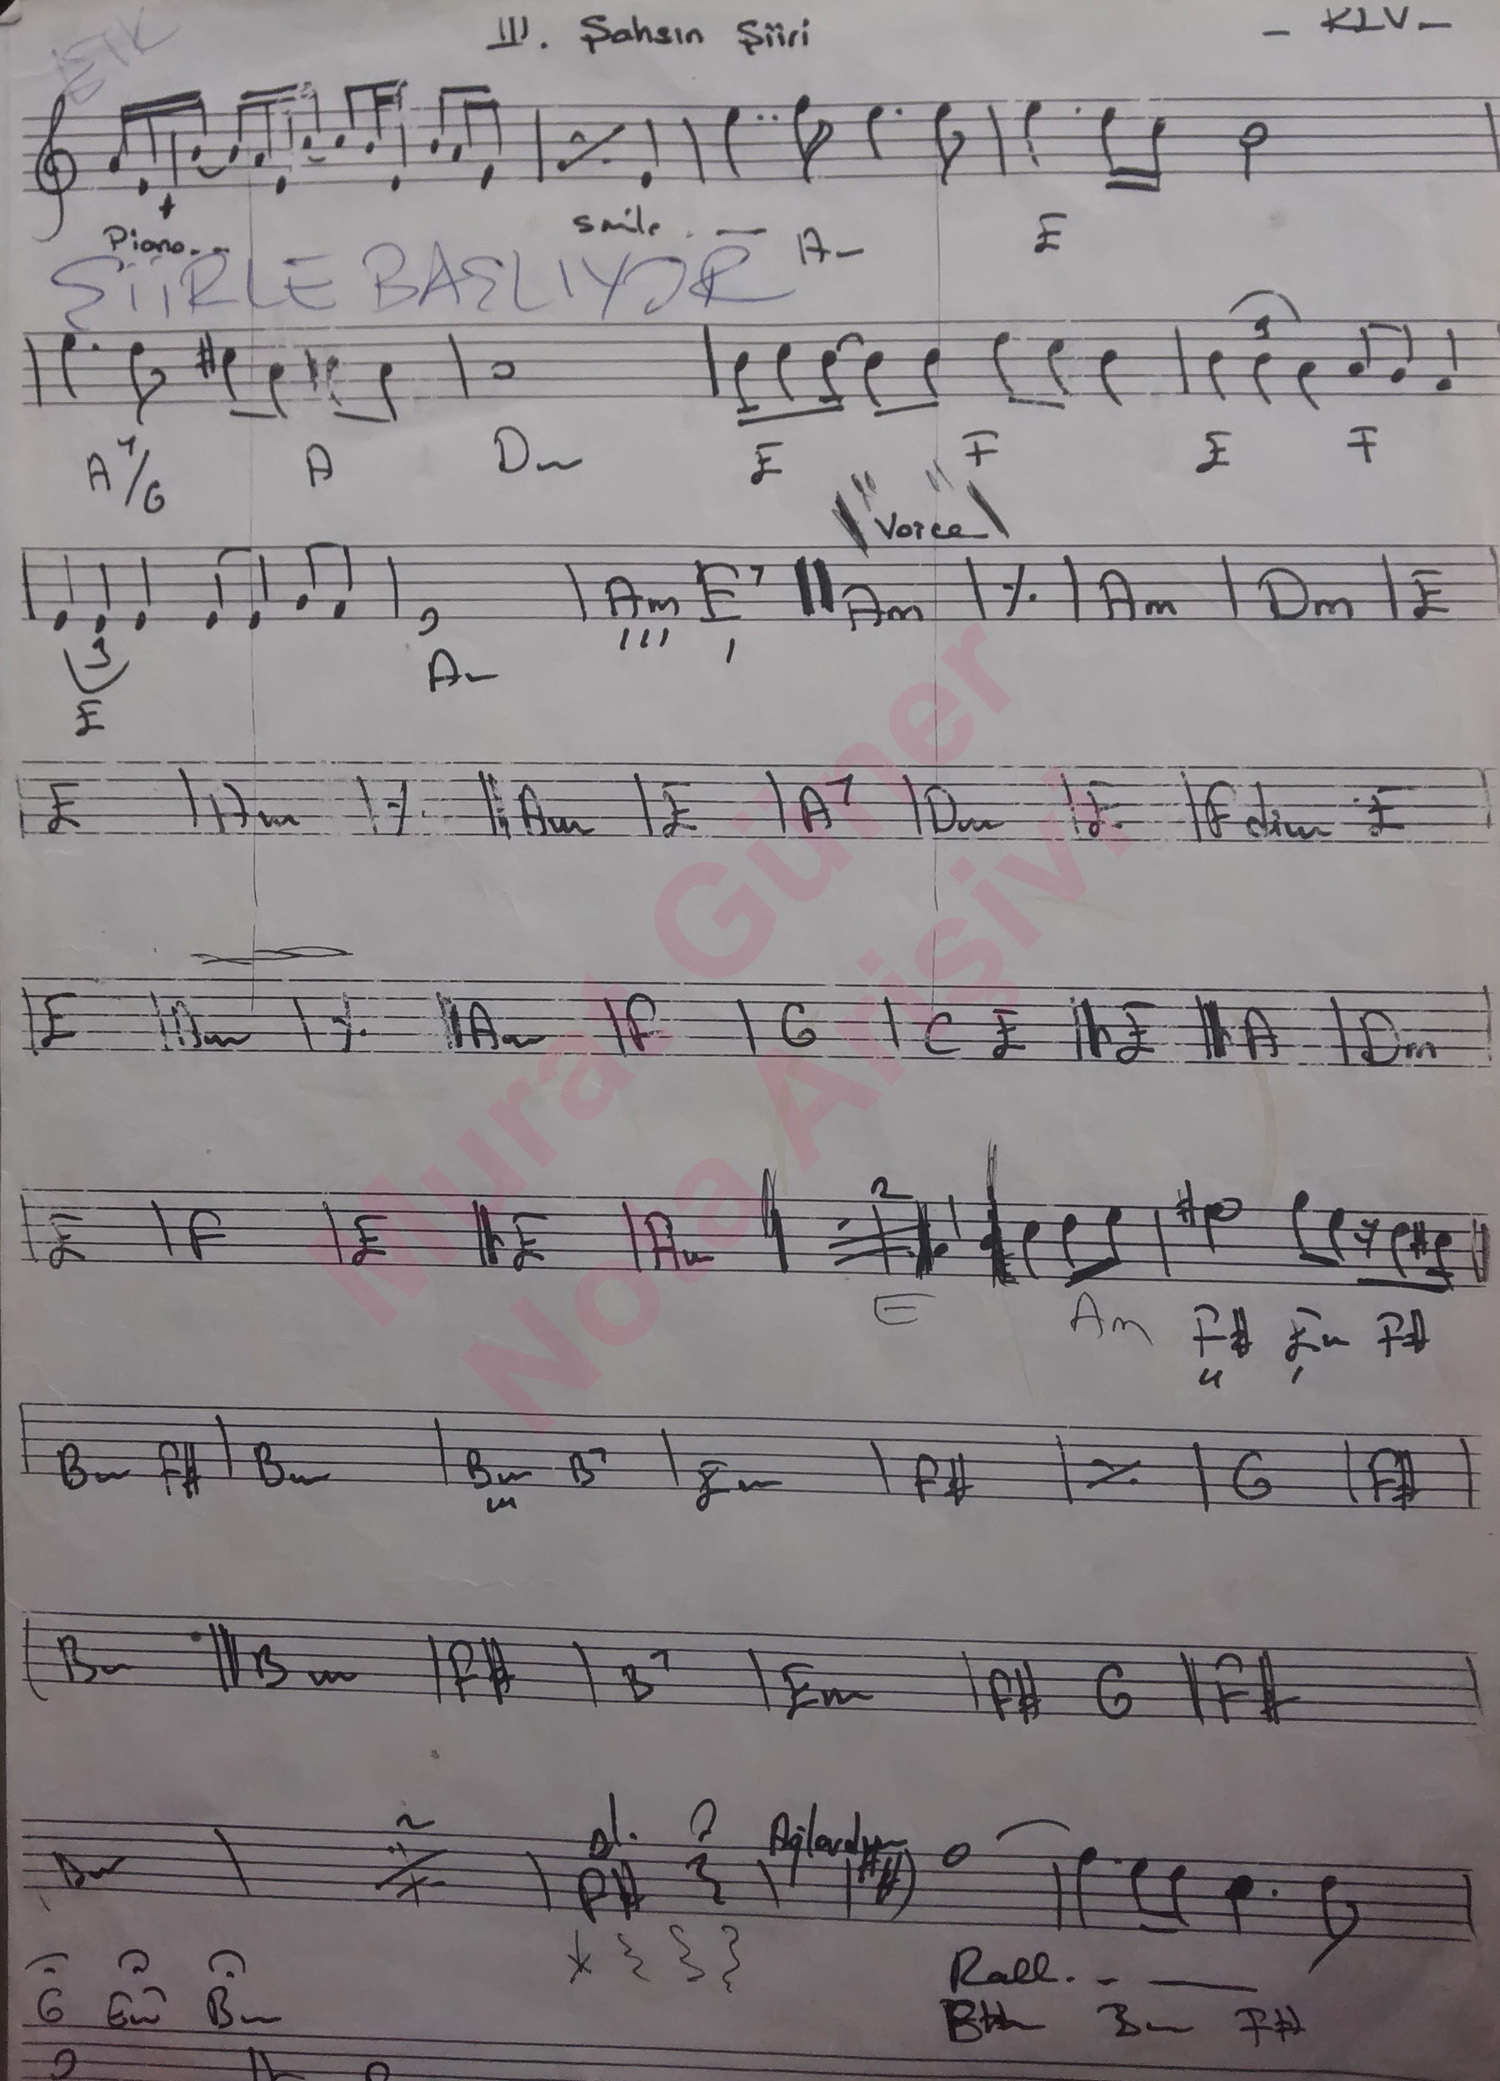 III. Şahsın Şiiri - KLV -
Piano.. smile. — Am E
ŞİİRLE BAŞLIYOR
3
A7/G A Dm E F E F
"Voice"
Am E7 Am ٪ Am Dm E
3
E Am
E Am ٪ Am E A7 Dm E Fdim E
E Am ٪ Am F G C E E A Dm
2
E F E E Am
E Am F# Em F#
Bm F# Bm Bm B7 Em F# ٪ G F#
Bm Bm F# B7 Em F# G F#
2
Bm F#
Rall. - —
G Em Bm Bm F#
Murat Güner
Nota Arişivi